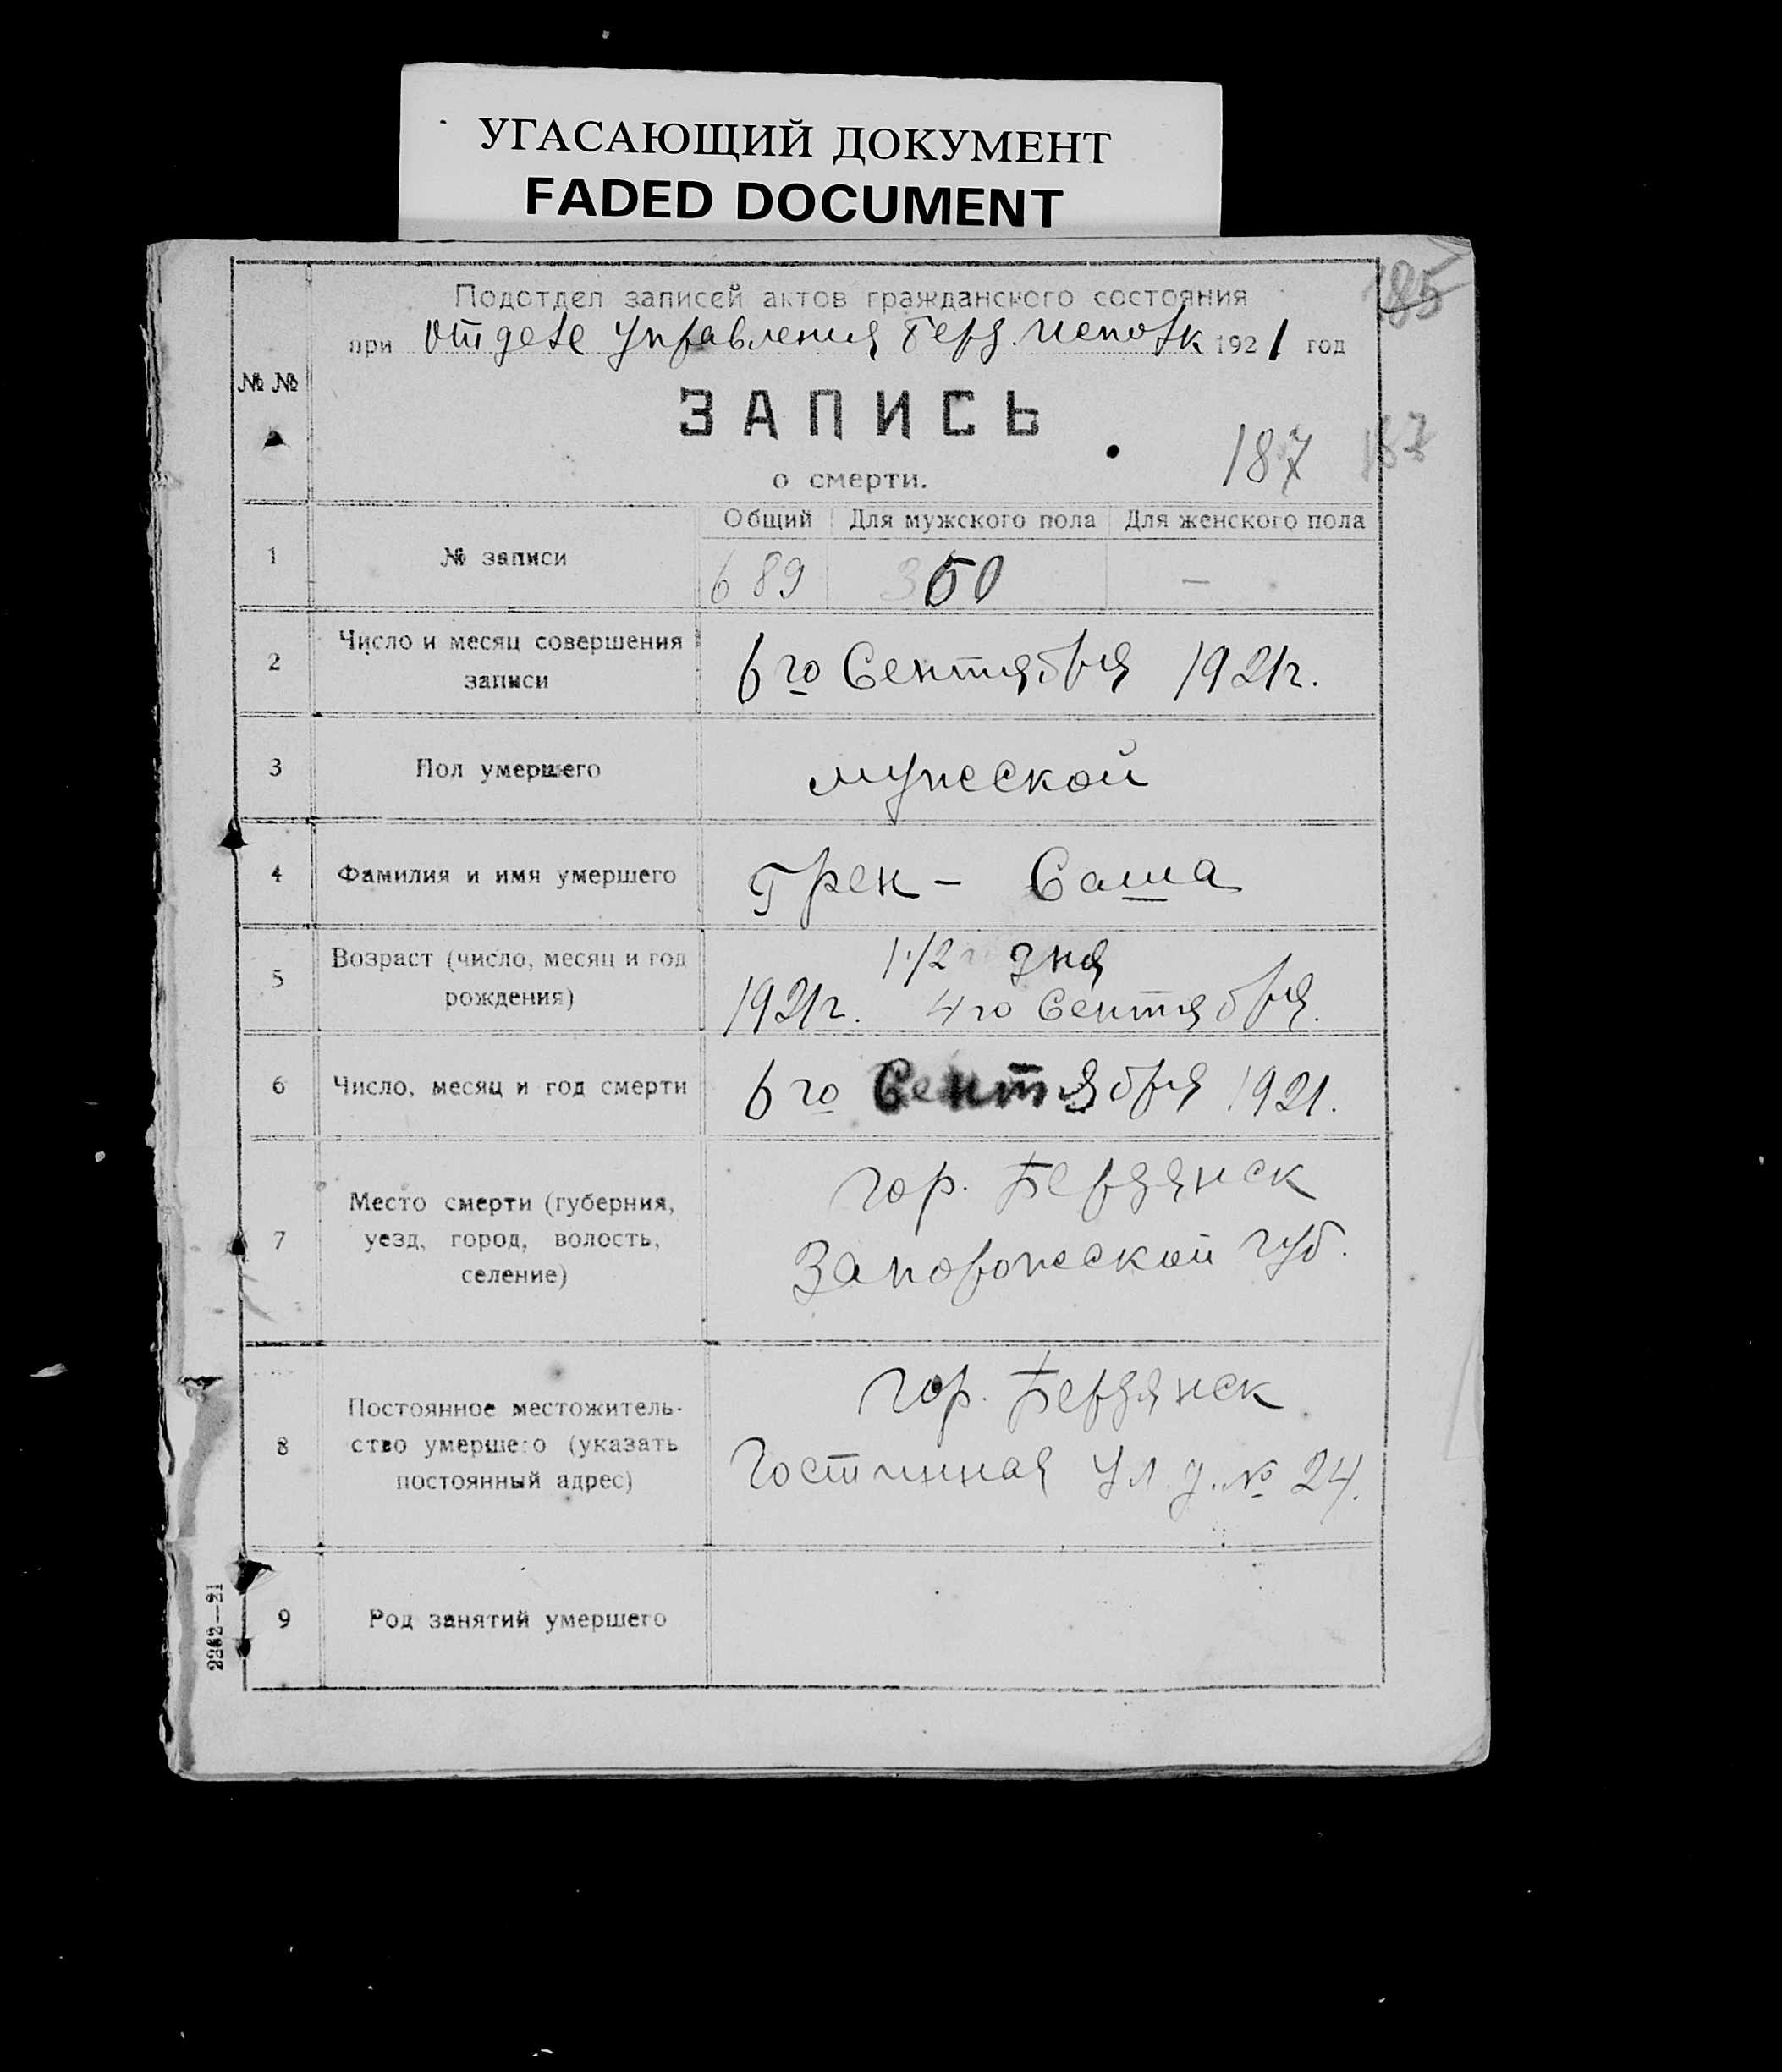 УГАСАЮЩИЙ ДОКУМЕНТ
FADED DOCUMENT
185
Подотдел записей актов гражданского состояния
при Отделе Управления Берд. Исполк 1921 год
№ №
ЗАПИСЬ
187 187
о смерти.
Общий Для мужского пола Для женского пола
1 № записи 689 350 —
2 Число и месяц совершения
записи
6го Сентября 1921г.
3 Пол умершего мужеской
4 Фамилия и имя умершего Грен - Саша
5 Возраст (число, месяц и год
рождения)
1 1/2 дня
1921г. 4го Сентября.
6 Число, месяц и год смерти 6го Сентября 1921.
7 Место смерти (губерния,
уезд, город, волость,
селение)
гор. Бердянск
Запорожеской губ.
8 Постоянное местожитель-
ство умершего (указать
постоянный адрес)
гор. Бердянск
Гостинная ул. д. № 24.
9 Род занятий умершего
2262—21